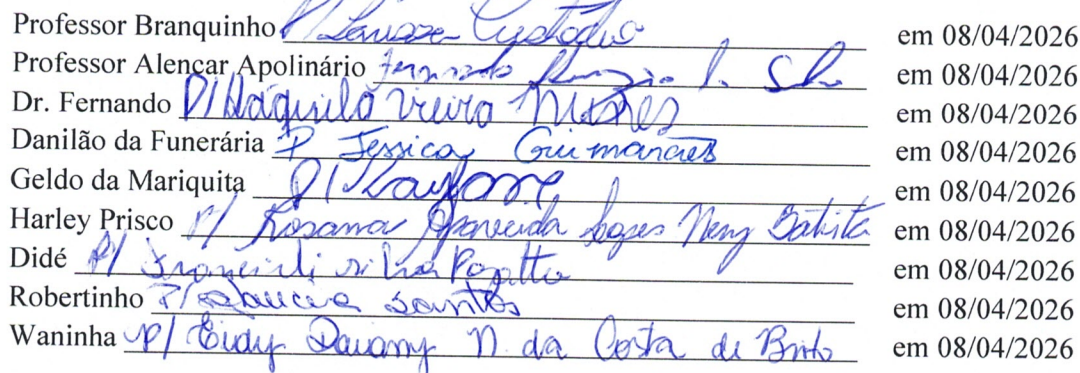 Professor Branquinho P/ Larissa Custódio em 08/04/2026
Professor Alencar Apolinário Fernando em 08/04/2026
Dr. Fernando P/ Vieira Nunes em 08/04/2026
Danilão da Funerária P Jessica Guimarães em 08/04/2026
Geldo da Mariquita P/ em 08/04/2026
Harley Prisco P/ Rosana Aparecida Lopes Nery Batista em 08/04/2026
Didé P/ Silva em 08/04/2026
Robertinho P/ Santos em 08/04/2026
Waninha P/ N. da Costa de Brito em 08/04/2026